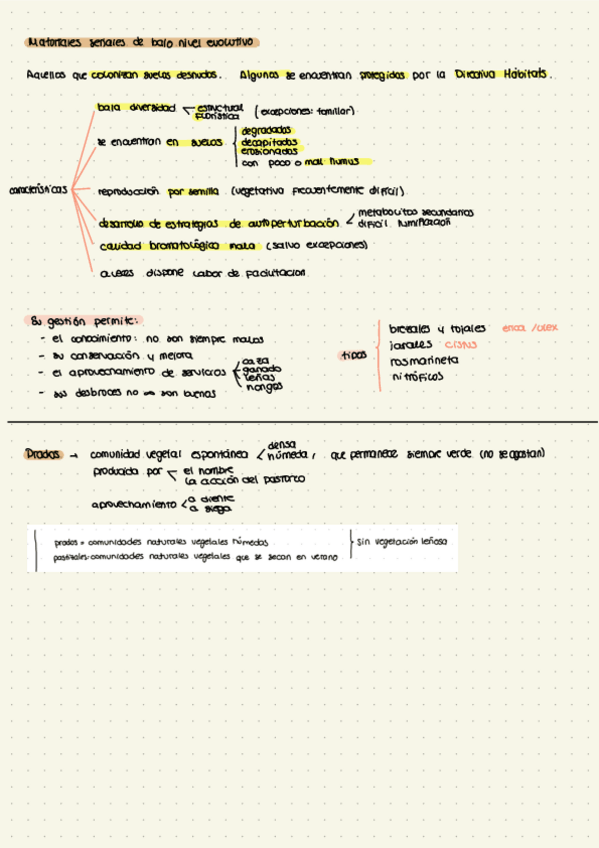 Matorrales seriales de bajo nivel evolutivo
Aquellos que colonizan suelos desnudos. Algunos se encuentran protegidos por la Directiva Hábitats.
características
baja diversidad < estructural
florística
(excepciones: tomillar)
se encuentran en suelos
degradados
decapitados
erosionados
con poco o mal humus
reproducción por semilla (vegetativa frecuentemente difícil)
desarrollo de estrategias de autoperturbación < metabolitos secundarios
difícil ruminación
calidad bromatológica mala (salvo excepciones)
a veces dispone labor de facilitación
Su gestión permite:
- el conocimiento: no son siempre malos
- su conservación y mejora
- el aprovechamiento de servicios < caza
ganado
leñas
hongos
- sus desbroces no son buenas
tipos
brezales y tojales erica /ulex
jarales cistus
rosmarineta
nitróficos
Prados → comunidad vegetal espontánea < densa
húmeda, que permanece siempre verde (no se agostan)
producida por < el hombre
la acción del pastoreo
aprovechamiento < a diente
a siega
prados = comunidades naturales vegetales húmedas
pastizales: comunidades naturales vegetales que se secan en verano
sin vegetación leñosa